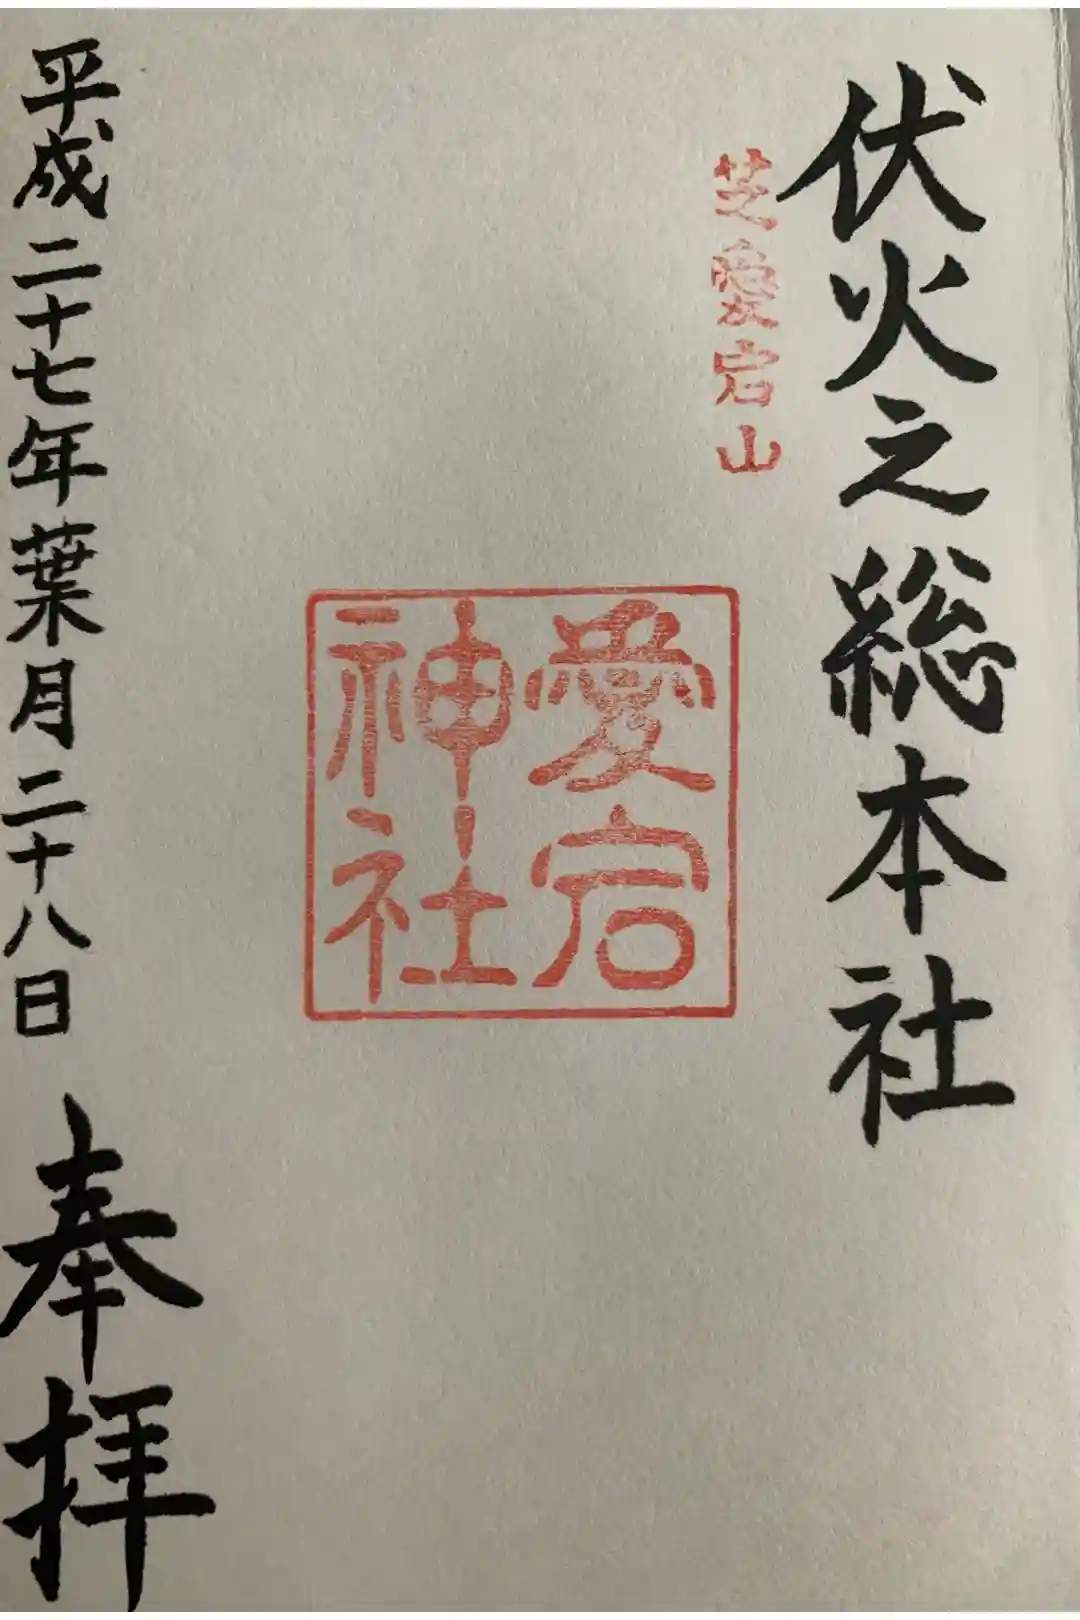 伏火之総本社
芝愛宕山
愛宕
神社
平成二十七年葉月二十八日
奉拝